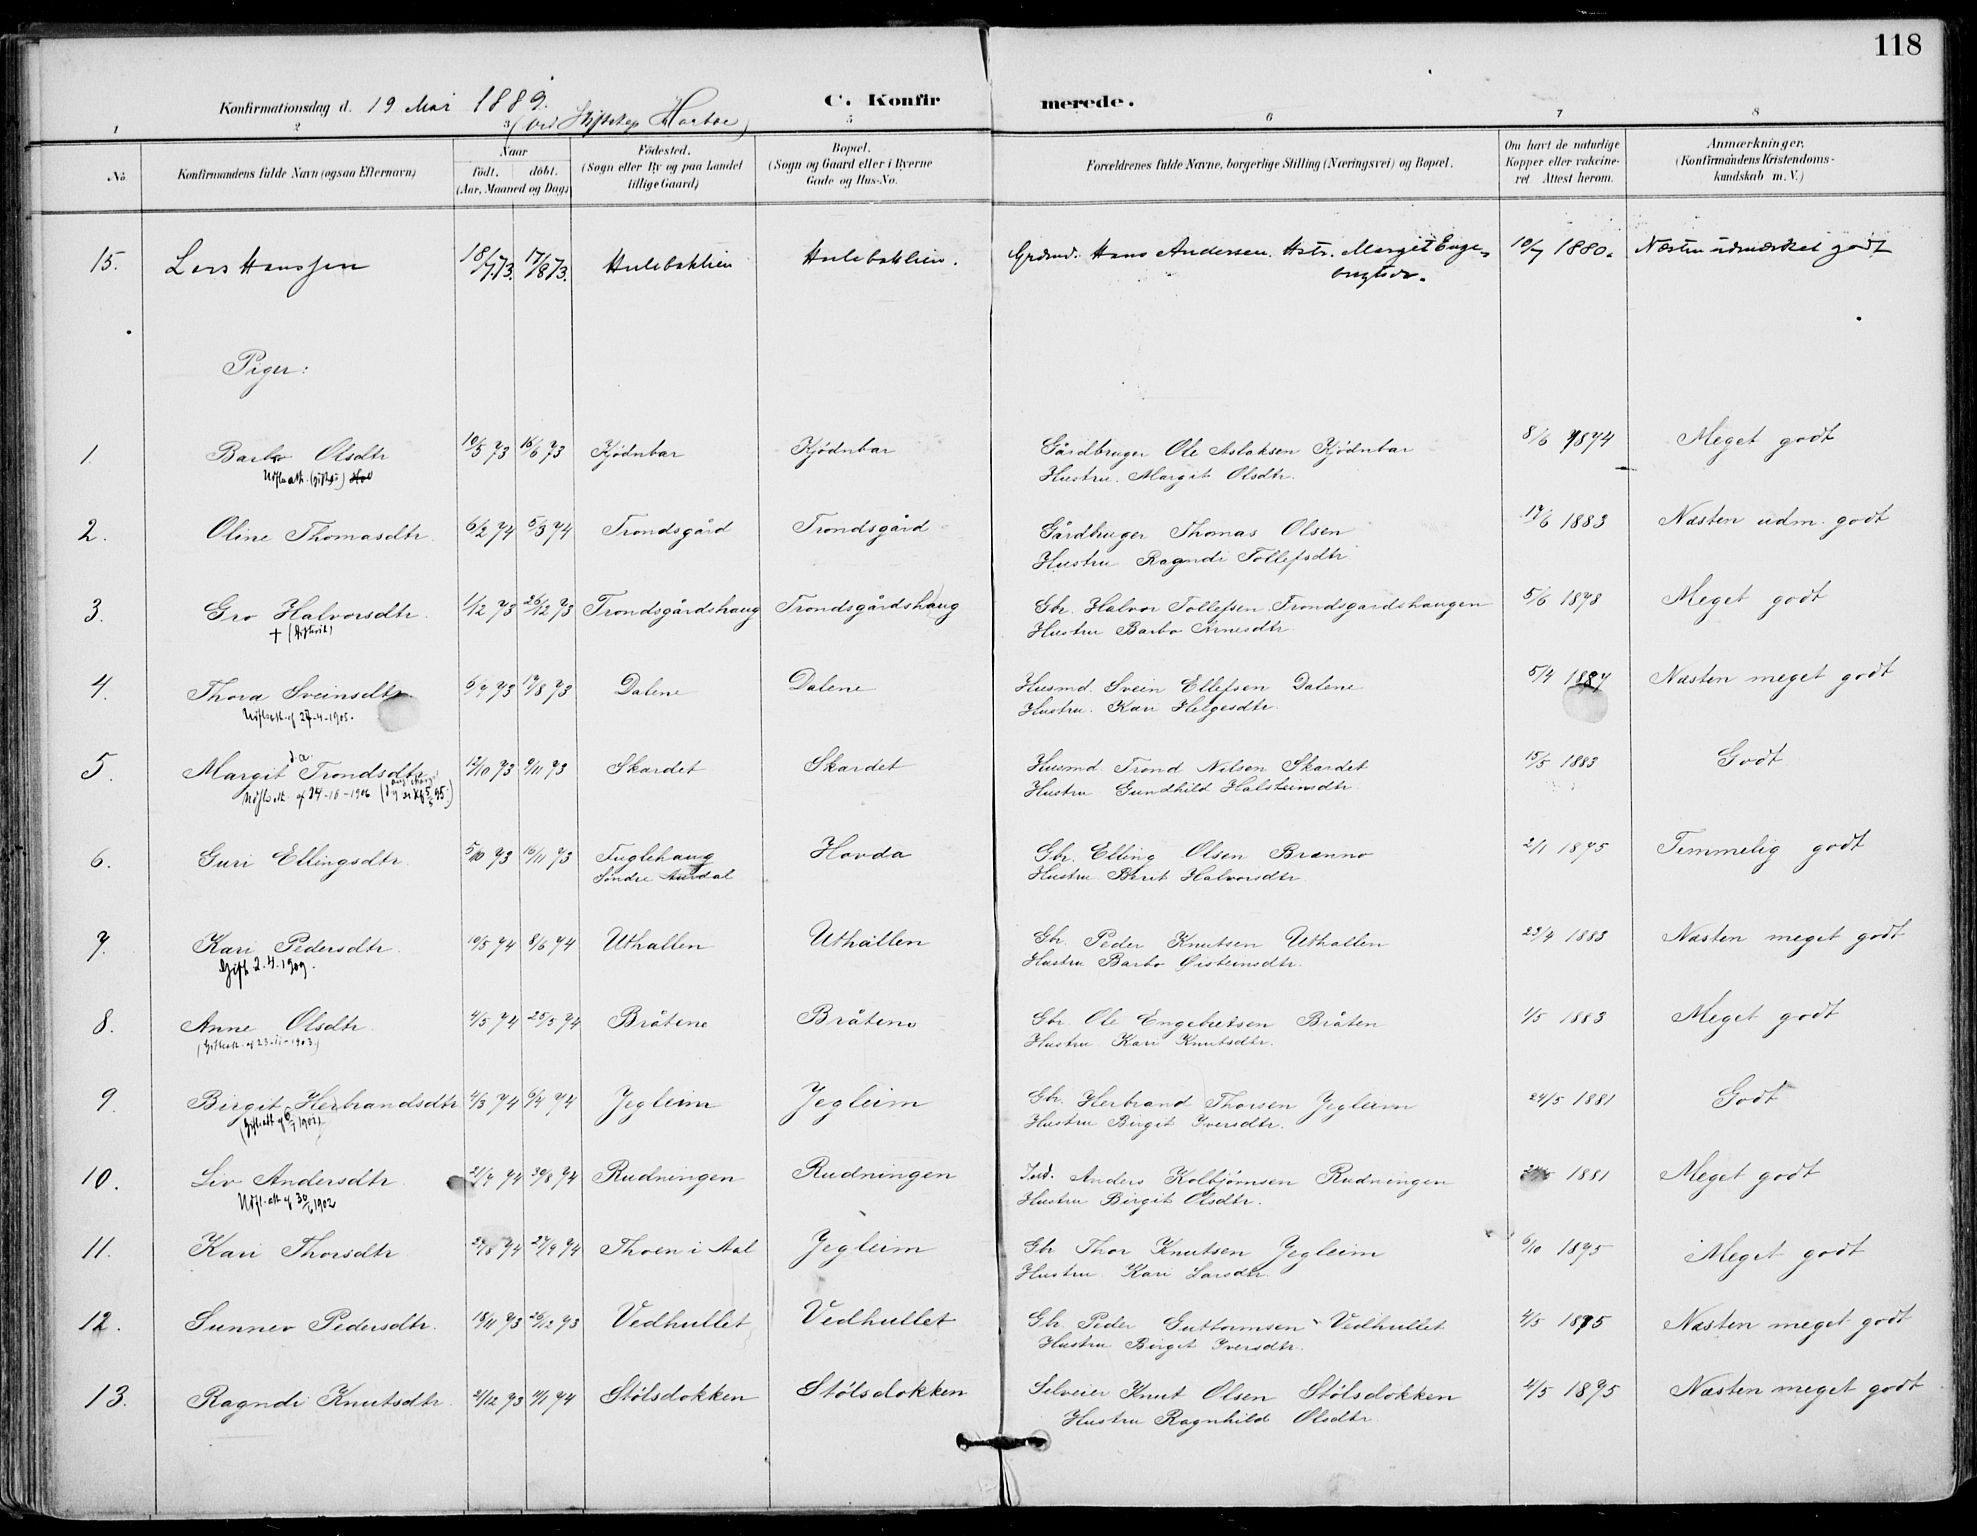 118
Konfirmationsdag d. 19 Mai 1889. C. Konfirmerede.
(ved Stiftskap. Hartse)
1 2 3 5 6 7 8
No. Konfirmandens fulde Navn (ogsaa Efternavn) Naar födt. döbt. (Aar, Maaned og Dag) Födested. (Sogn eller By og paa Landet tillige Gaard) Bopæl. (Sogn og Gaard eller i Byerne Gade og Hus-No. Forældrenes fulde Navne, borgerlige Stilling (Næringsvei) og Bopæl. Om havt de naturlige Kopper eller vakcineret Attest herom. Anmærkninger, (Konfirmandens Kristendomskundskab m. V.)
15. Lars Hanssen 18/7 73. 17/8 73. Hulebaklien Hulebaklien. Grdmd. Hans Andersen. Hstr. Margit Engebrigtsdr. 10/7 1880. Næsten udmærket godt
Piger:
1. Barbo Olsdtr 10/5 73 15/6 73 Kjödnbar Kjödnbar Gårdbruger Ole Aslaksen Kjödnbar 8/6 1874 Meget godt
Hustru. Margit Olsdtr.
2. Oline Thomasdtr. 6/2 74 5/3 74 Trondsgård Trondsgård Gårdbruger Thomas Olsen 17/6 1883 Næsten udm. godt
Hustru Ragndi Tollefsdtr.
3. Gro Halvorsdtr. 1/12 73 26/12 73 Trondsgårdshaug Trondsgårdshaug Gbr. Halvor Tollefsen Trondsgardshaugen 5/6 1878 Meget godt
Hustru Barbo Arnesdtr.
4. Thora Sveinsdtr. 6/7 73 17/8 73 Dalene Dalene Husmd. Svein Ellefsen Dalene 5/4 1887 Næsten meget godt
27-4-1905. Hustru. Kari Helgesdtr.
5. Margit Trondsdtr 12/10 73 9/11 73 Skardet Skardet Husmd Trond Nilsen Skardet 15/5 1883 Godt
Hustru Gundhild Halsteinsdtr.
6. Guri Ellingsdtr. 5/10 73 16/11 73 Fuglehaug Hovda Gbr. Elling Olsen Brænno 2/1 1875 Temmelig godt
Söndre Aurdal Hustru Berit Halvorsdtr.
7. Kari Pedersdtr. 10/5 74 8/6 74 Uthallen Uthallen Gbr. Peder Knutsen Uthallen 23/4 1883 Næsten meget godt
Gift 2.4.1909. Hustru Barbo Øisteinsdtr.
8. Anne Olsdtr. 4/5 74 25/5 74 Bråtene Bråtene Gbr. Ole Engebretsen Bråten 4/5 1883 Meget godt
(Gifteatt. af 23-11-1903.) Hustru Kari Knutsdtr.
9. Birgit Herbrandsdtr 4/3 74 6/4 74 Jegleim Jegleim Gbr. Herbrand Thorsen Jegleim 24/5 1881 Godt
Hustru Birgit Iversdtr.
10. Liv Andersdtr. 21/7 74 30/8 74 Rudningen Rudningen Ind. Anders Kolbjörnsen Rudningen 1881 Meget godt
1902 Hustru Birgit Olsdtr.
11. Kari Thorsdtr. 29/8 74 27/9 74 Thoen i Aal Jegleim Gbr Thor Knutsen Jegleim 6/10 1875 Meget godt
Hustru. Kari Larsdtr.
12. Sunnev Pedersdtr. 18/11 73 26/12 73 Vedhullet Vedhullet Gbr. Peder Guttormsen Vedhullet 4/5 1875 Næsten meget godt
Hustru Birgit Iversdtr.
13. Ragndi Knutsdtr. 2/12 73 11/1 74 Stölsdokken Stölsdokken Selveier Knut Olsen Stölsdokken 4/5 1875 Næsten meget godt
Hustru Ragnhild Olsdtr.